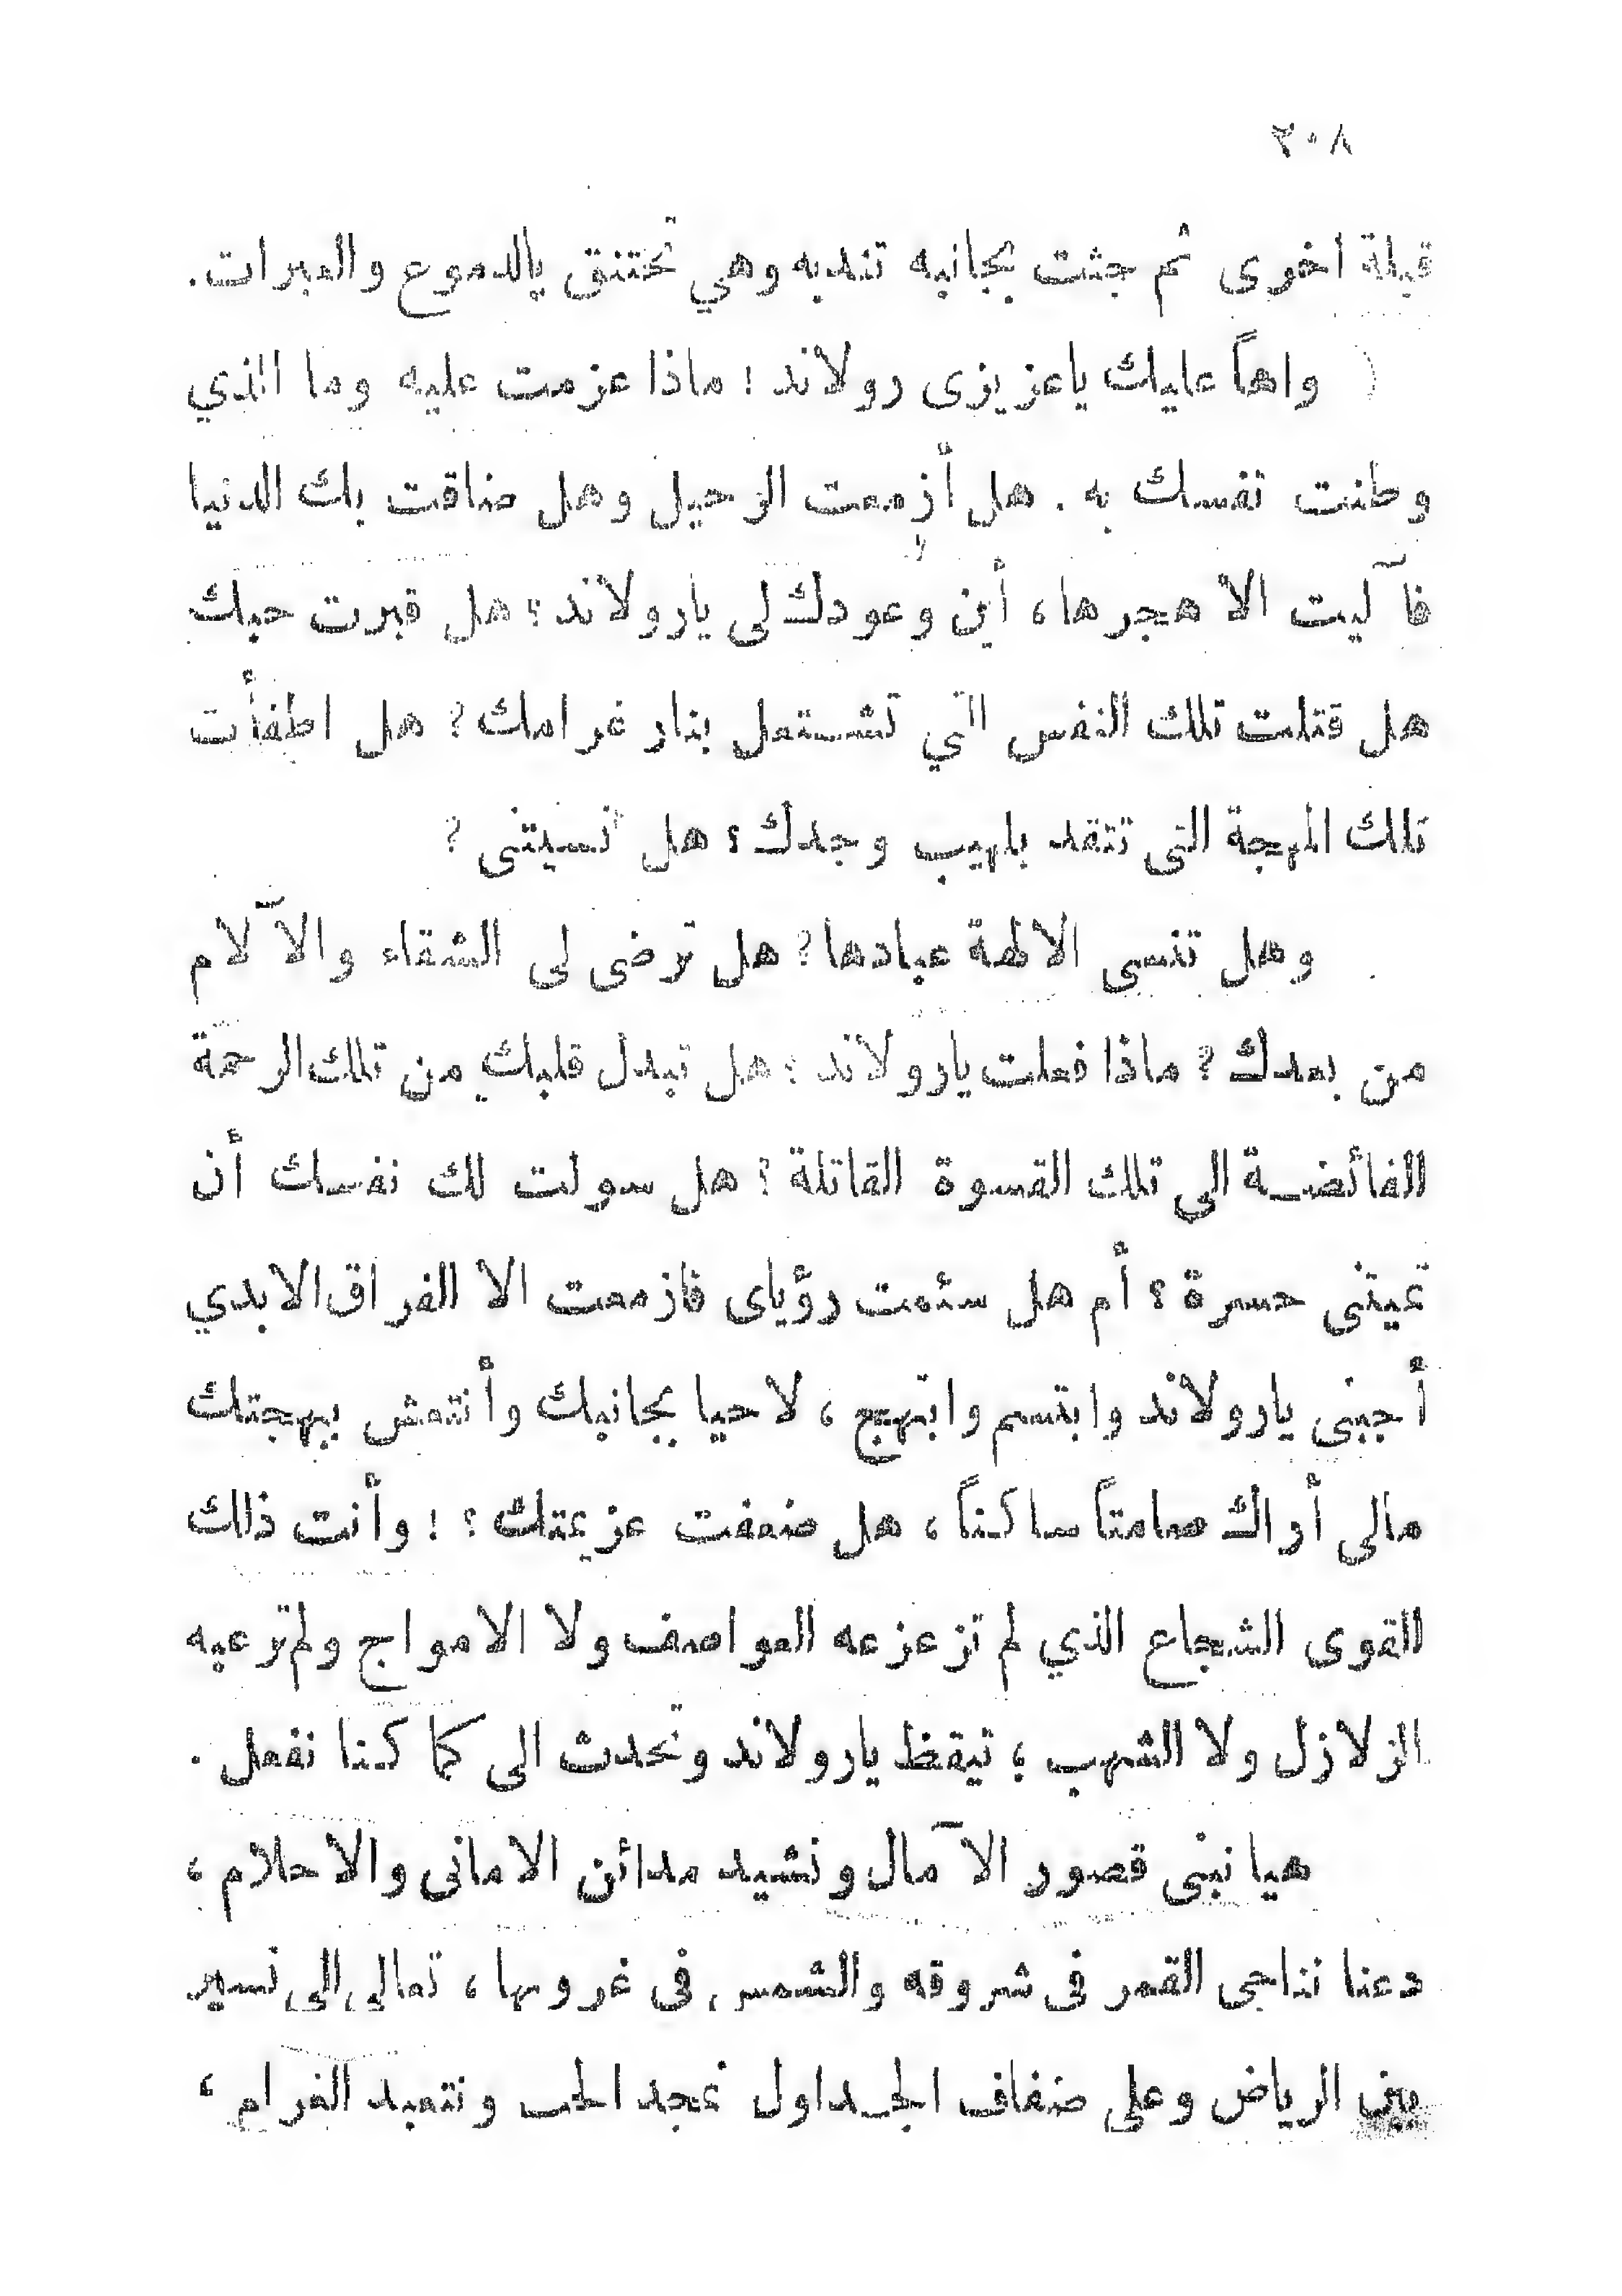 ٣٠٨
قبلة اخرى ثم جثت بجانبه تندبه وهي تختنق بالدموع والعبرات.
( واهاً عليك ياعزيزى رولاند ! ماذا عزمت عليه وما الذي
وطنت نفسك به . هل أزمعت الرحيل وهل ضاقت بك الدنيا
فآليت الا هجرها ، أين وعودك لى يارولاند ؟ هل قبرت حبك
هل قتلت تلك النفس التي تشتعل بنار غرامك ? هل اطفأت
تلك المهجة التى تتقد بلهيب وجدك ؟ هل نسيتنى ?
وهل تنسى الالهة عبادها ? هل ترضى لى الشقاء والآلام
من بعدك ? ماذا فعلت يارولاند ؟ هل تبدل قلبك من تلك الرحمة
الفائضة الى تلك القسوة القاتلة ? هل سولت لك نفسك أن
تميتنى حسرة ؟ أم هل سئمت رؤياى فازمعت الا الفراق الابدي
أجبنى يارولاند وابتسم وابتهج ، لاحيا بجانبك وأنتعش ببهجتك
مالى أراك صامتاً ساكناً ، هل ضعفت عزيمتك ؟ ! وأنت ذلك
القوى الشجاع الذي لم تزعزعه العواصف ولا الامواج ولم ترعبه
الزلازل ولا الشهب ؛ تيقظ يارولاند وتحدث الى كما كنا نفعل .
هيا نبنى قصور الآمال ونشيد مدائن الامانى والاحلام ،
دعنا نناجى القمر فى شروقه والشمس فى غروبها ، تعالى الى نسير
بين الرياض وعلى ضفاف الجداول نمجد الحب ونتعبد الغرام ،